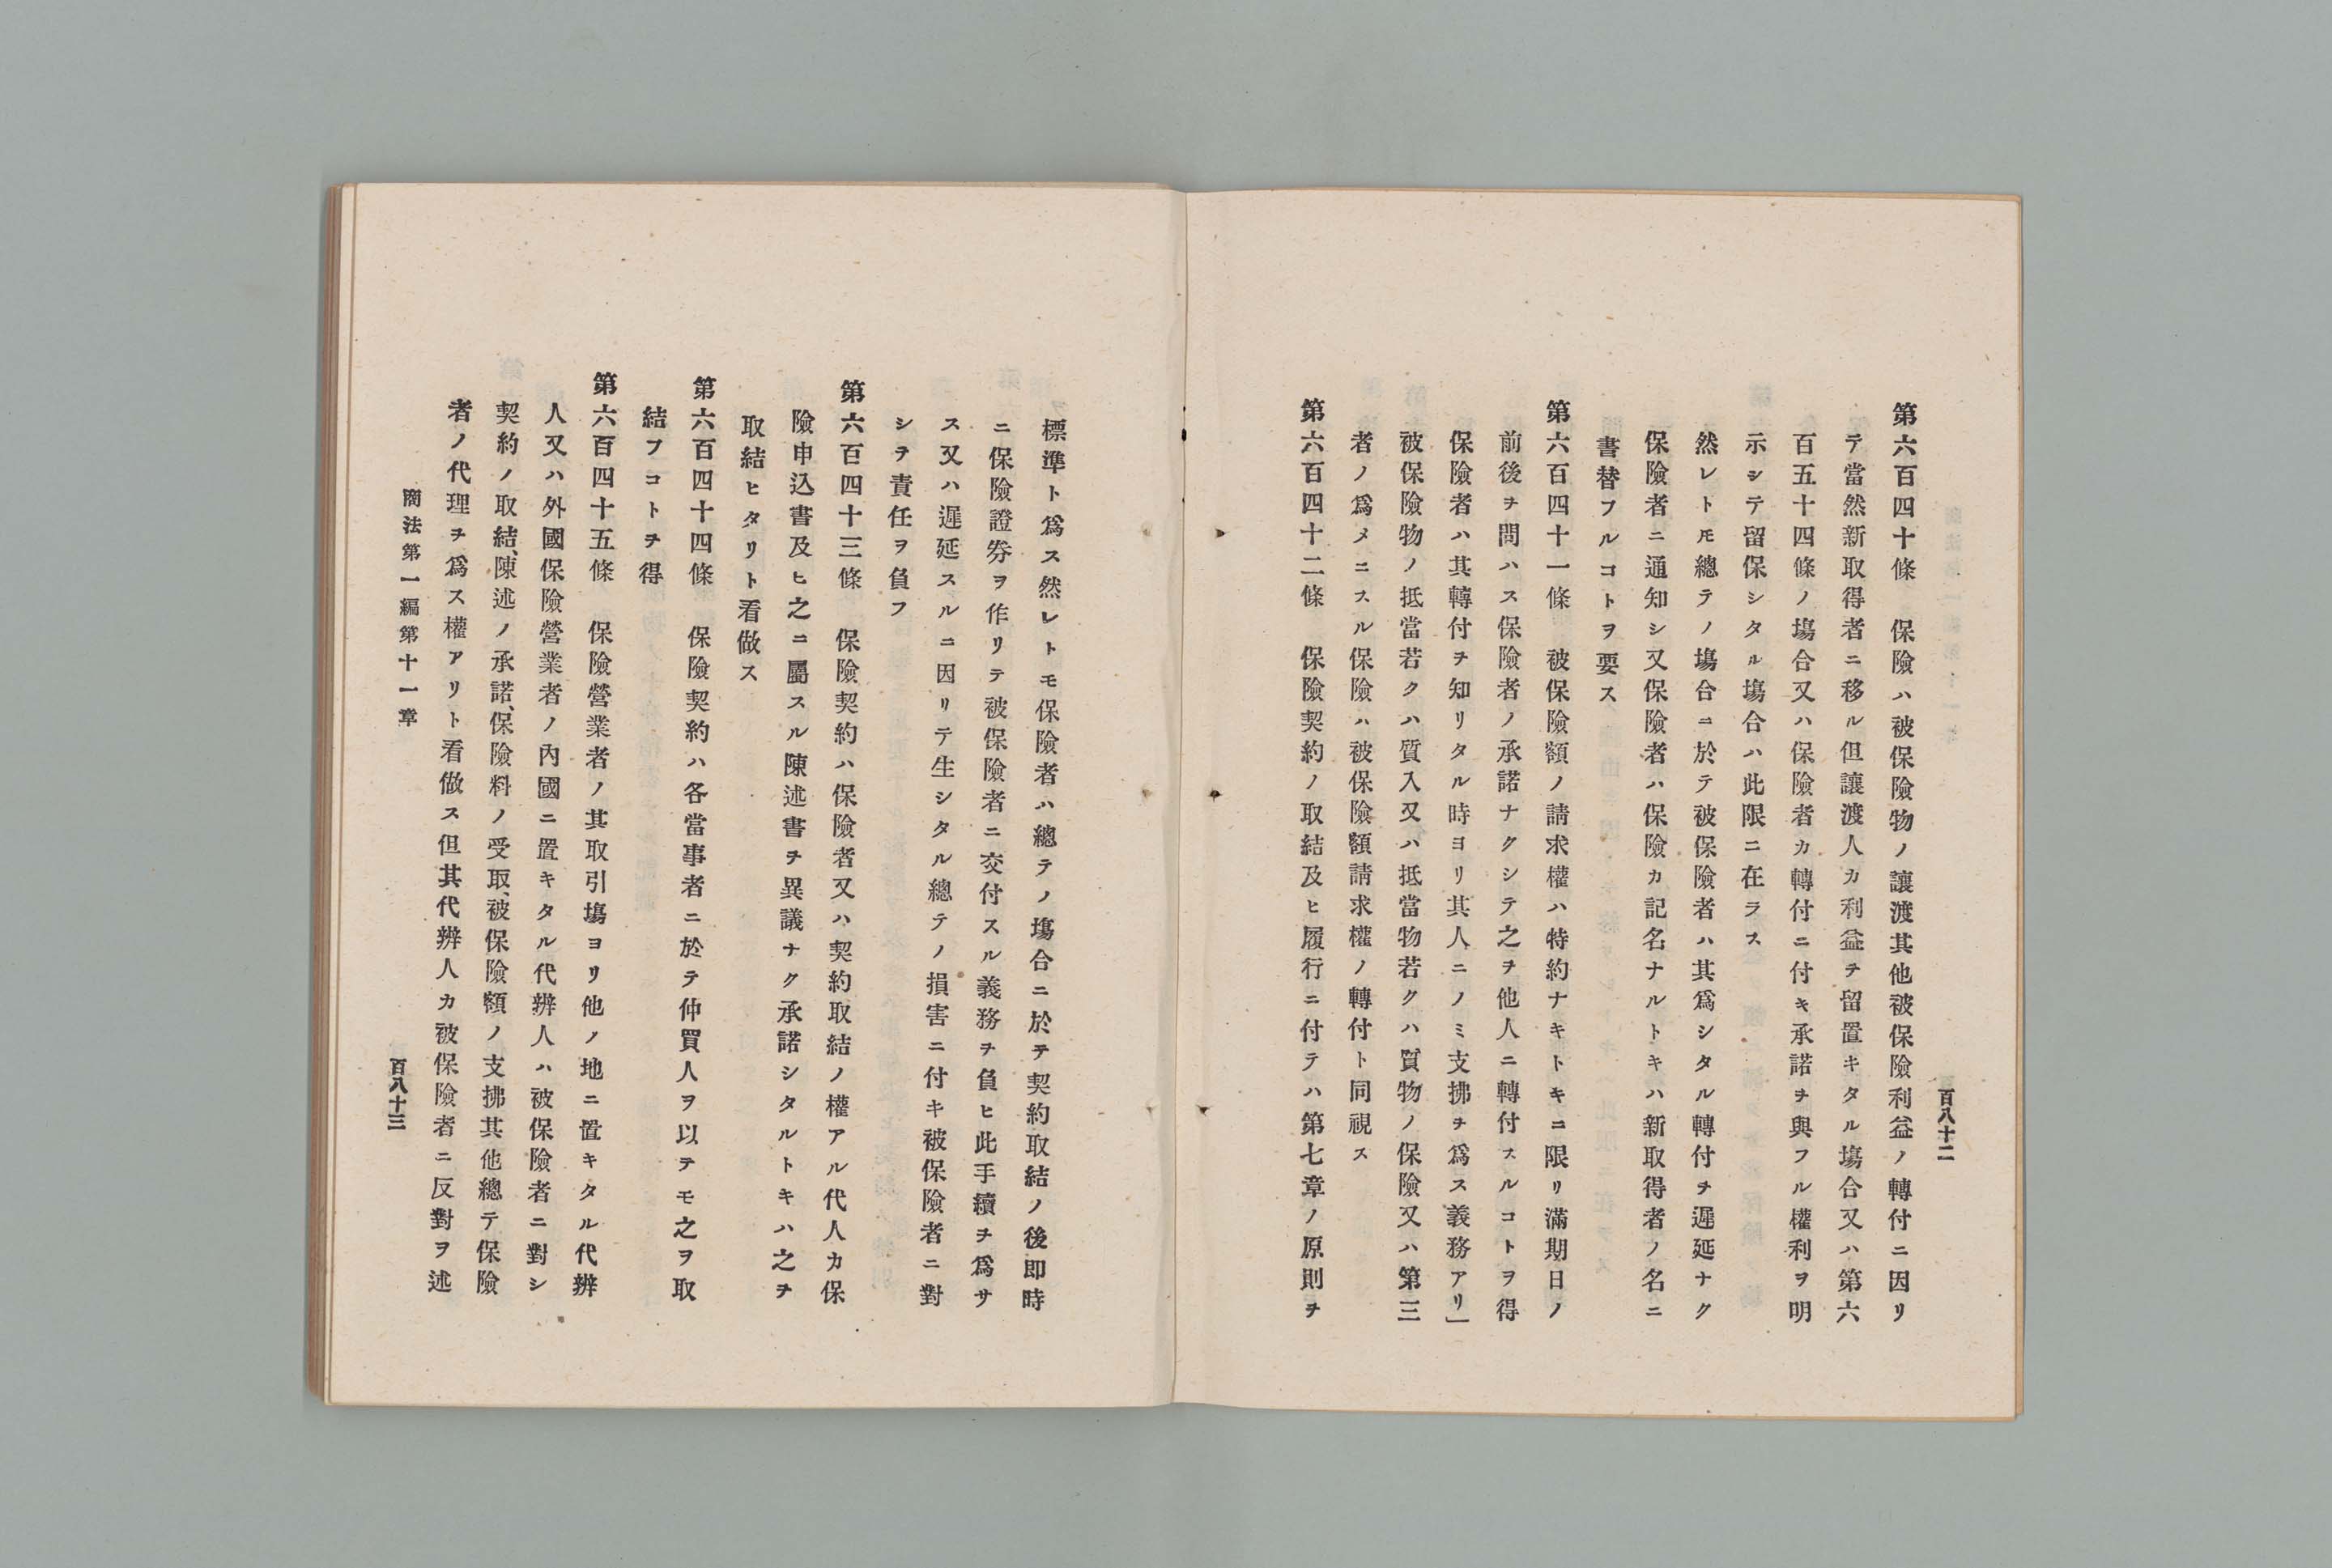 百八十二
第六百四十條　保險ハ被保險物ノ讓渡其他被保險利益ノ轉付ニ因リ
テ當然新取得者ニ移ル但讓渡人カ利益ヲ留置キタル塲合又ハ第六
百五十四條ノ塲合又ハ保險者カ轉付ニ付キ承諾ヲ與フル權利ヲ明
示シテ留保シタル塲合ハ此限ニ在ラス
然レトモ總テノ塲合ニ於テ被保險者ハ其爲シタル轉付ヲ遲延ナク
保險者ニ通知シ又保險者ハ保險カ記名ナルトキハ新取得者ノ名ニ
書替フルコトヲ要ス
第六百四十一條　被保險額ノ請求權ハ特約ナキトキニ限リ滿期日ノ
前後ヲ問ハス保險者ノ承諾ナクシテ之ヲ他人ニ轉付スルコトヲ得
保險者ハ其轉付ヲ知リタル時ヨリ其人ニノミ支拂ヲ爲ス義務アリ」
被保險物ノ抵當若クハ質入又ハ抵當物若クハ質物ノ保險又ハ第三
者ノ爲メニスル保險ハ被保險額請求權ノ轉付ト同視ス
第六百四十二條　保險契約ノ取結及ヒ履行ニ付テハ第七章ノ原則ヲ
標準ト爲ス然レトモ保險者ハ總テノ塲合ニ於テ契約取結ノ後即時
ニ保險證券ヲ作リテ被保險者ニ交付スル義務ヲ負ヒ此手續ヲ爲サ
ス又ハ遲延スルニ因リテ生シタル總テノ損害ニ付キ被保險者ニ對
シテ責任ヲ負フ
第六百四十三條　保險契約ハ保險者又ハ契約取結ノ權アル代人カ保
險申込書及ヒ之ニ屬スル陳述書ヲ異議ナク承諾シタルトキハ之ヲ
取結ヒタリト看做ス
第六百四十四條　保險契約ハ各當事者ニ於テ仲買人ヲ以テモ之ヲ取
結フコトヲ得
第六百四十五條　保險營業者ノ其取引塲ヨリ他ノ地ニ置キタル代辨
人又ハ外國保險營業者ノ內國ニ置キタル代辨人ハ被保險者ニ對シ
契約ノ取結、陳述ノ承諾、保險料ノ受取、被保險額ノ支拂其他總テ保險
者ノ代理ヲ爲ス權アリト看做ス但其代辨人カ被保險者ニ反對ヲ述
商法第一編第十一章
百八十三